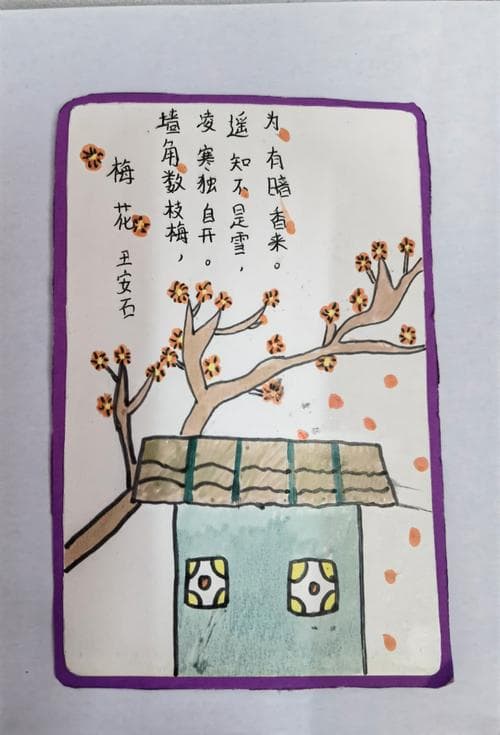 梅花 王安石
墙角数枝梅，
凌寒独自开。
遥知不是雪，
为有暗香来。